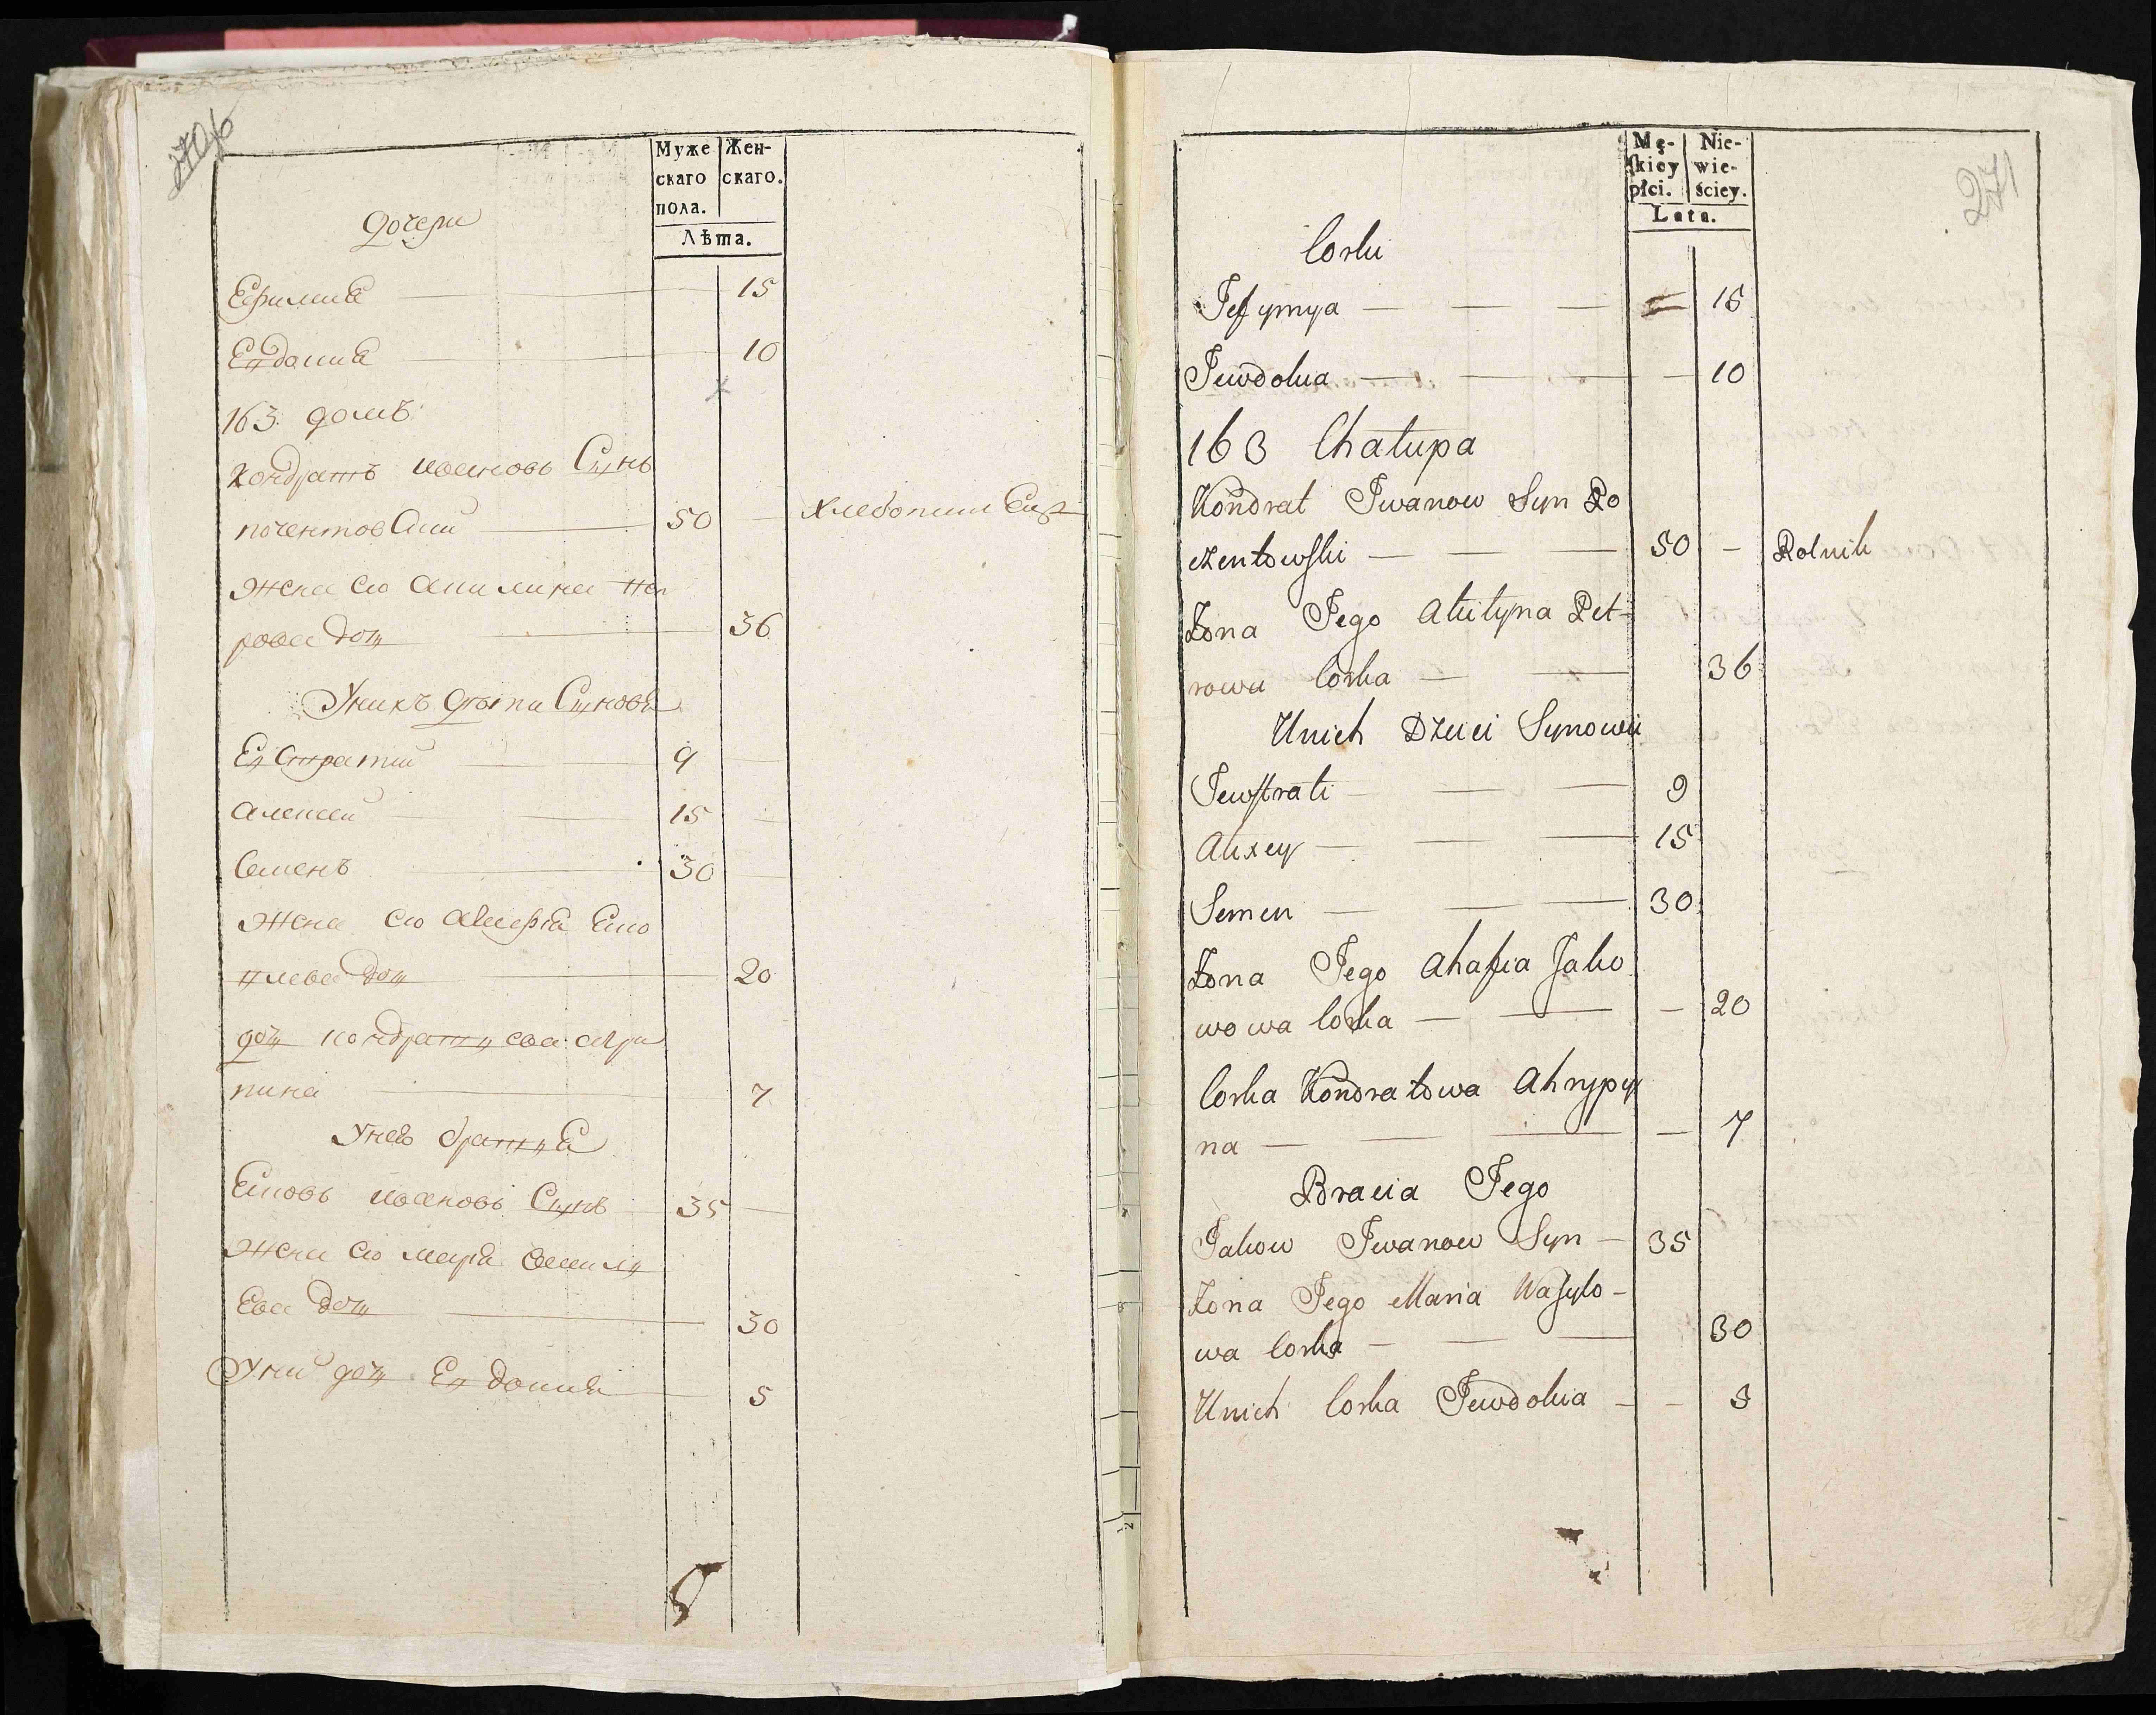 270об
Муже
скаго
пола.
Жен-
скаго.
Лѣта.
Дочери
Ефимия 15
Евдокия 10
163 домъ
Кондратъ Ивановъ Сынъ
почентовский 50 хлебопашец
жена его Акилина пет
рова дочь 36
У них дѣти Сыновя
Евстратий 9
Алексей 15
Семенъ 30
жена его Агафия Яко
влева дочь 20
дочь Кондратиева Агри
пина 7
У него братия
Яковъ Ивановъ Сынъ 35
жена его Мария Василь
ева дочь 30
У них дочь Евдокия 5
271
Mę-
skiey
płci.
Nie-
wie-
ściey.
Lata.
Corki
Jefymya — — — — 15
Jewdokia — — — — 10
163 Chałupa
Kondrat Iwanow Syn Po
czentowski — — — 50 — Rolnik
Żona Jego Akilyna Pet-
rowa Corka — — 36
Unich Dzieci Synowie
Jewstrati — — — 9
Alixey — — — 15
Semen — — — 30
Żona Jego Ahafia Jako
wowa Corka — — — 20
Corka Kondratowa Ahrypy
na — — — — 7
Bracia Jego
Jakow Iwanow Syn — 35
Żona Jego Maria Wasylo-
wa Corka — — — 30
Unich Corka Jewdokia — — 5